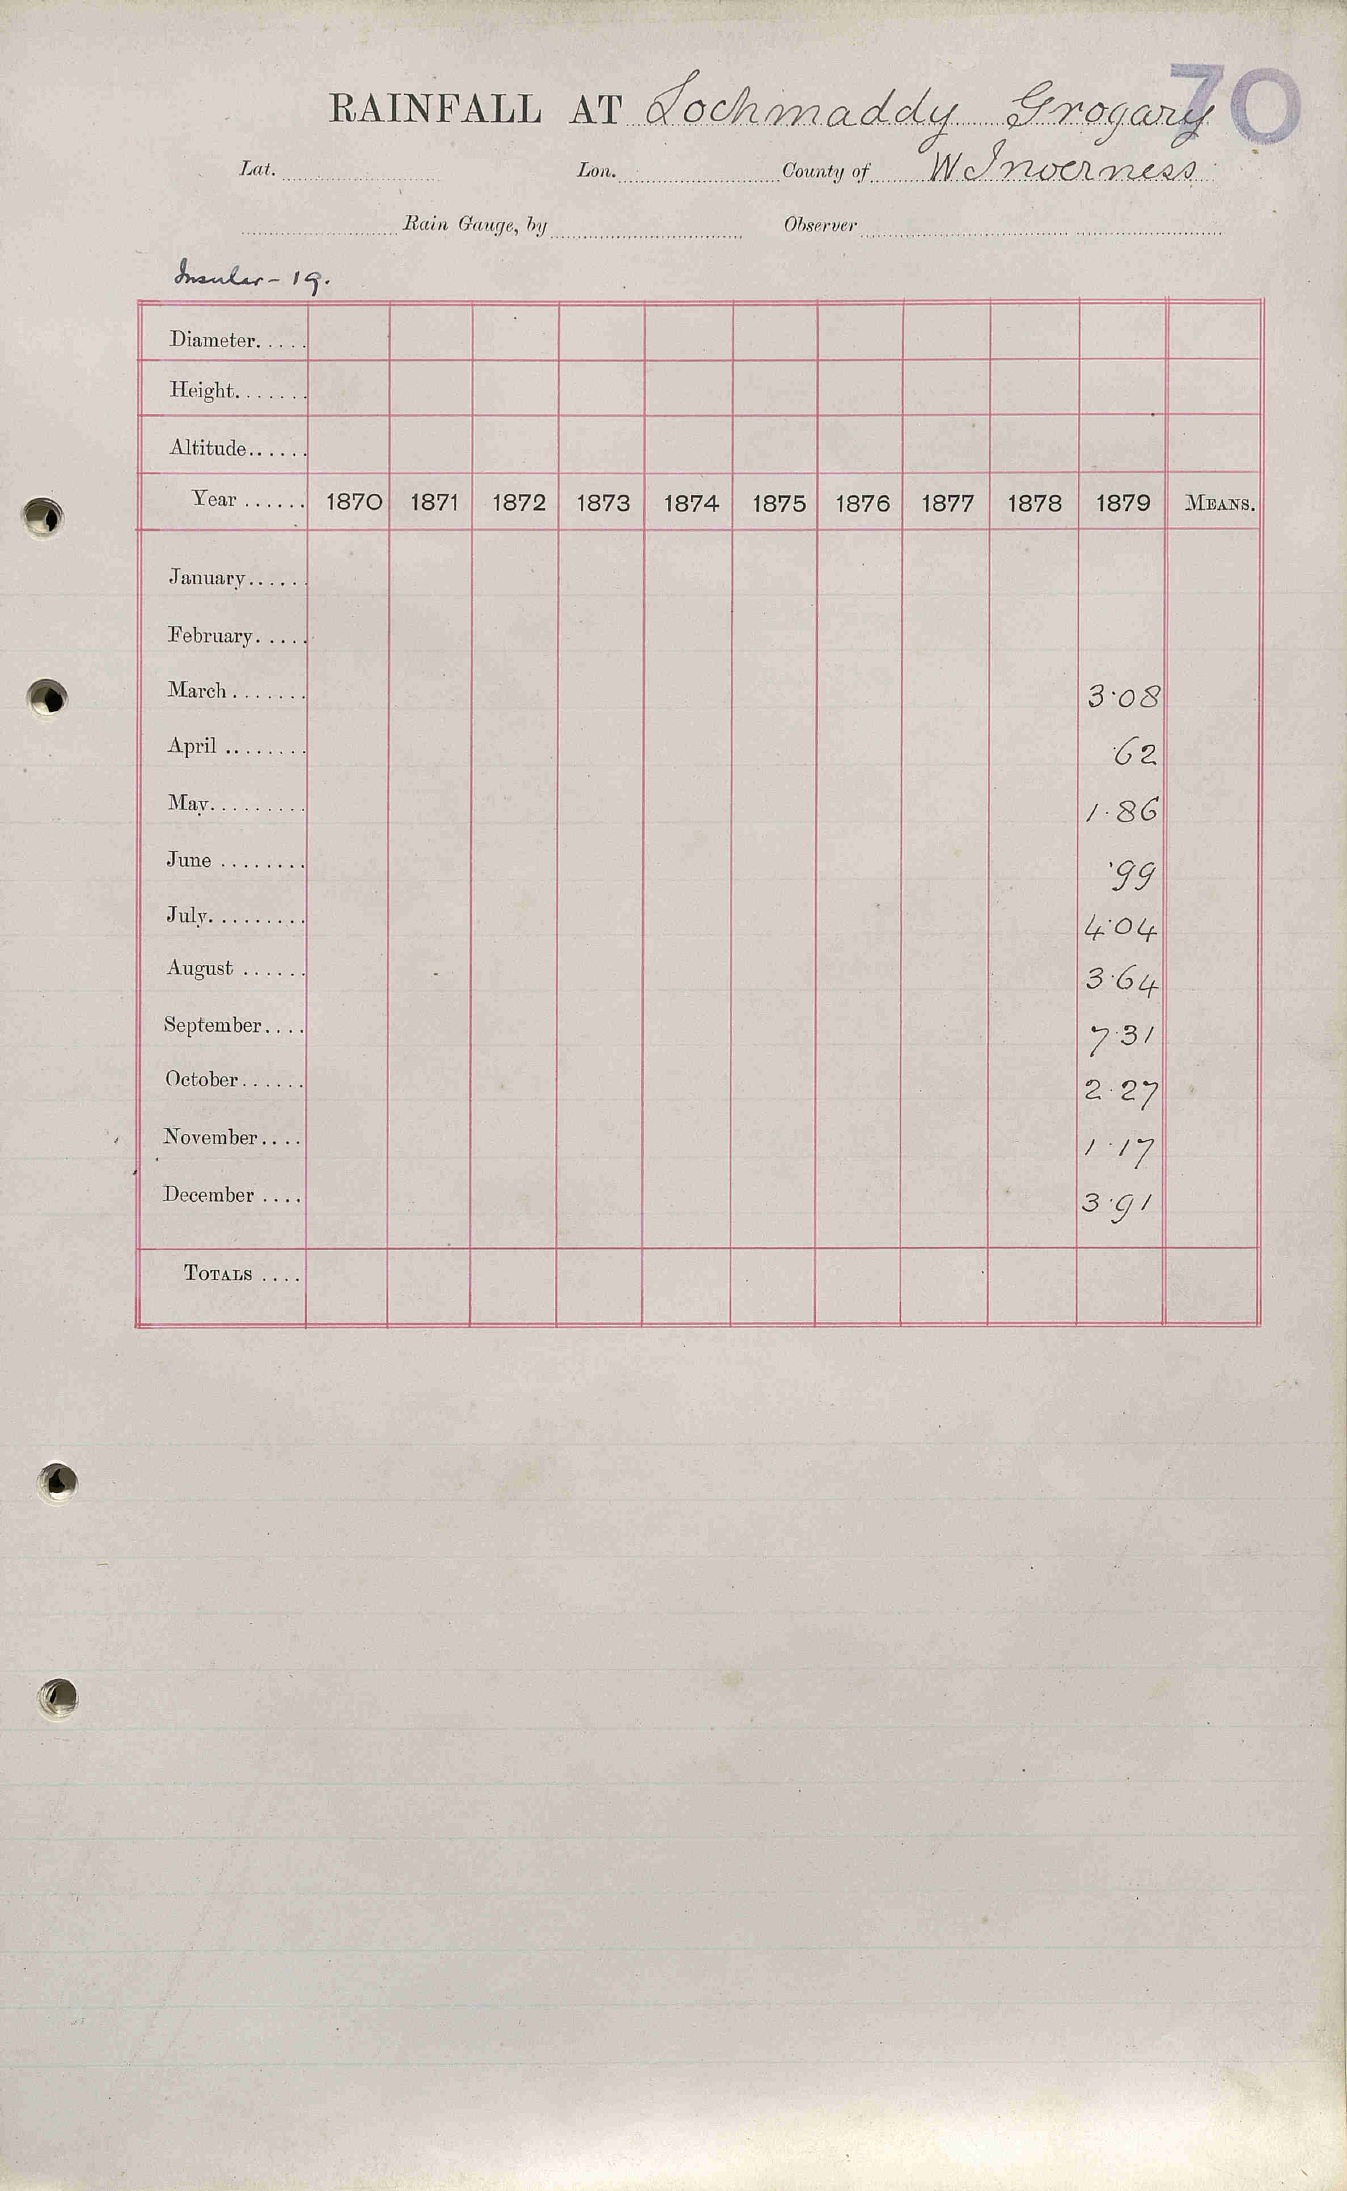 70
RAINFALL AT Lochmaddy Grogary
Lat. Lon. County of W Inverness
Rain Gauge, by Observer
Insular - 19.
Diameter
Height
Altitude
Year 1870 1871 1872 1873 1874 1875 1876 1877 1878 1879 MEANS.
January
February
March 3·08
April ·62
May 1·86
June ·99
July 4·04
August 3·64
September 7·31
October 2·27
November 1·17
December 3·91
TOTALS